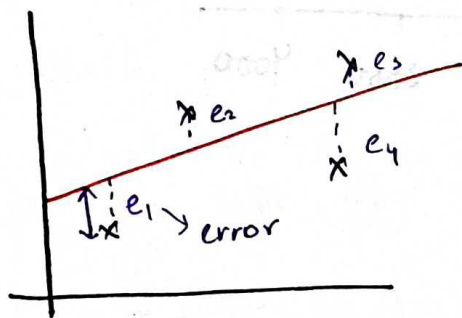 e3
e2
e4
e1
error